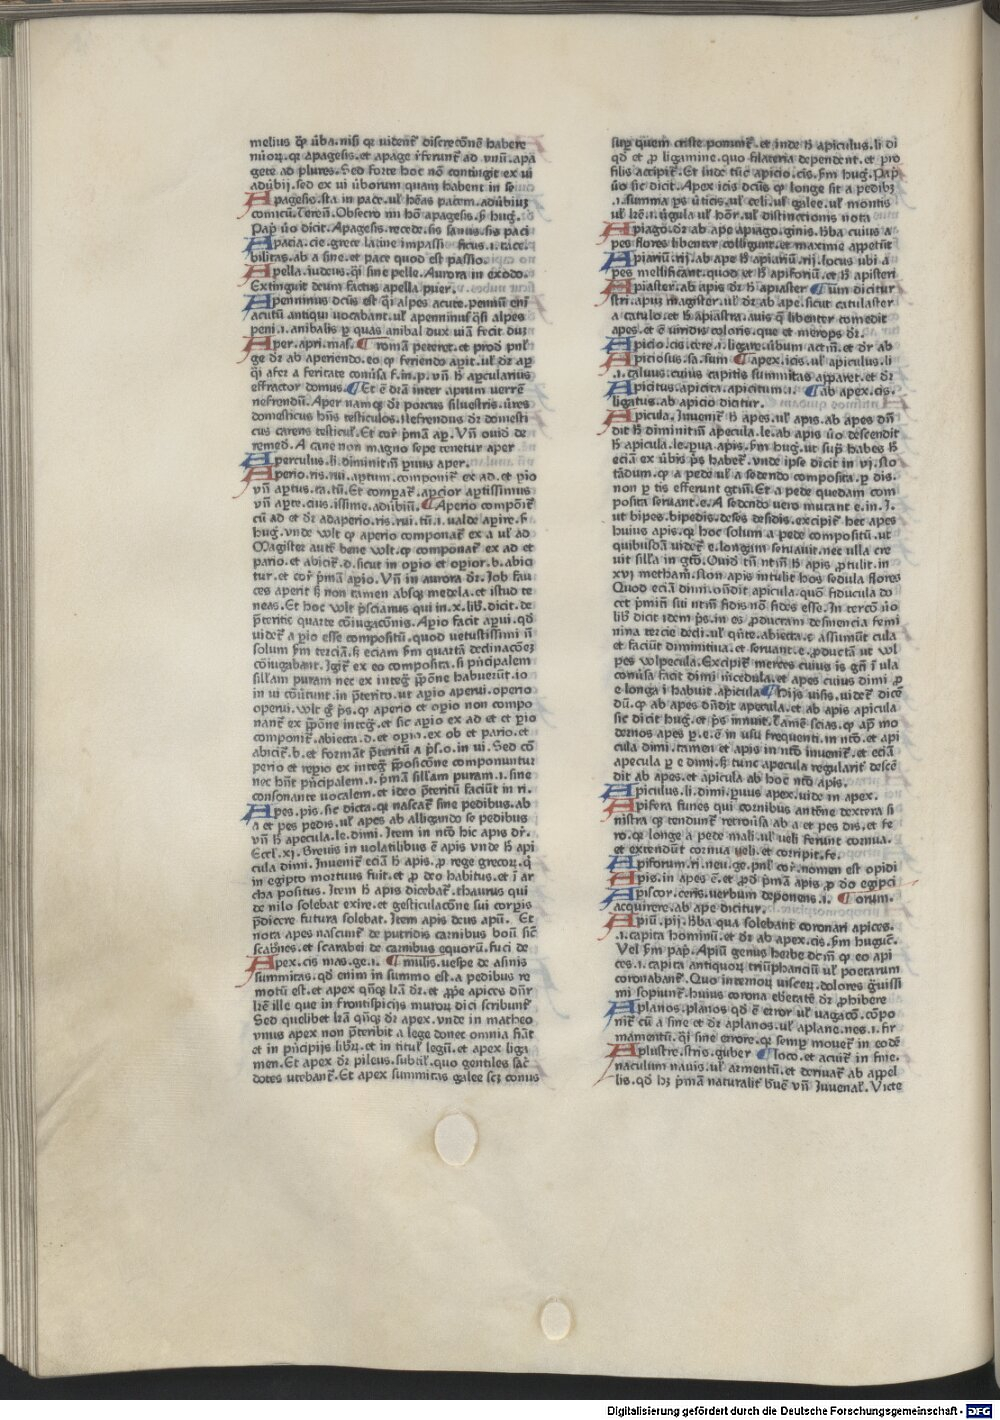 melius q̄ꝫ ūba. nisi qꝛ uident᷒ discrecōnē habere
nūorꝫ. qꝛ apagesis. et apage r̄ferunt᷒ ad vnū. apa
gete ad plures. Sed forte hoc nō contingit ex ui
adūbij. sed ex ui ūborum quam habent in se
Apagesis. sta in pace. ul̓ hēas pacem. adūbiuꝫ
comicū. Teren̄. Obsecro mi hō apagesis. ẜm hug.
Pap̄ ūo dicit. Apagesis. recede. sis sanus. sis paci
Apatia. cie. grece latine impassi ficus. i. tace.
bilitas. ab a sine. et pace quod est passio.
Apella. iudeus. q̄i sine pelle. Aurora in exodo.
Extinguit deum factus apella puer.
Apenninus dcūs est q̄i alpes acute. pennū eni
acutū antiqui uocabant. ul̓ apenninus q̄si alpes
peni. i. anibalis ꝑ quas anibal dux uiā fecit duꝫ
Aper. apri. mas. ¶ romā peteret. et prod̄ pnl̓
ge dr̄ ab aperiendo. eo ꝙ feriendo aꝑit. ul̓ dr̄ aꝑ
q̄i afer a feritate conūsa. f. in. p. vn̄ h̄ apercularius
effractor domus. ¶ Et ē dr̄ā inter aprum uerrē
nefrendū. Aper namqꝫ dr̄ porcus siluestris. ūres
domesticus hn̄s testiculos. Nefrendus dr̄ domesti
cus carens testicul᷒. Et cor̄ pͥmā aꝑ. Vn̄ ouid̄ de
remed̄. A cane non magno sepe tenetur aper
Aperculus. li. diminitm̄ ꝑuus aper.
Aperio. ris. rui. aptum. componit᷒ ex ad. et pio
vn̄ aptus. ta. tū. Et compar᷒. apcior aptissimus
vn̄ apte. cius. issime. adūbiū. ¶ Aperio compōit᷒
cū ad et dr̄ adaperio. ris. rui. tū. i. ualde apire. ẜm
hug. vnde wlt ꝙ aperio componat᷒ ex a ul̓ ad
Magister aut̄ bene wlt. ꝙ componat᷒ ex ad et
pario. et abicit᷒. d. sicut in opio et opior. b. abici
tur. et cor̄ pͥmā apio. Vn̄ in aurora dr̄. Iob fau
ces aperit sꝫ non tamen absqꝫ medela. et istud te
neas. Et hoc wlt pͥscianus qui in. x. lib̓. dicit. de
pͣteritꝭ quarte cōiugacōnis. Apio facit apui. qd̄
uidet᷒ a pio esse compositū. quod uetustissimi n̄
solum ẜm terciā. sꝫ eciam ẜm quartā declinacōeꝫ
cōiugabant. Igit᷒ ex eo composita. si pͥncipalem
sillam puram nec ex integ᷒ pͣpone habuerūt. io
in ui cōūtunt. in pͣterito. ut apio aperui. operio
operui. wlt g̊ pͥs. ꝙ aperio et opio non compo
nant᷒ ex pͣpōne integ᷒. et sic apio ex ad et ꝑio
componit᷒. abiecta. d. et opio. ex ob et pario. et
abicit᷒. b. et formāt pͣteritū a pͥs. o. in ui. Sed cō
perio et repio ex integ᷒ pͣposicōne componuntur
nec hn̄t pͥncipalem. i. pͥmā sillam puram. i. sine
consonante uocalem. et ideo pͣteritū faciūt in ri.
Apes. pis. sic dicta. qꝛ nascat᷒ sine pedibus. ab
a et pes pedis. ul̓ apes ab alligando se pedibus
vn̄ h̄ apecula. le. dimi. Item in nt̄o hic apis dr̄.
Eccl̓. xj. Breuis in uolatilibus ē apis vnde h̄ api
cula dimi. Inuenit᷒ eciā h̄ apis. ꝓ rege grecorꝫ. q̄
in egipto mortuus fuit. et ꝓ deo habitus. et ī ar
cha positus. Item h̄ apis dicebat᷒. thaurus qui
de nilo solebat exire. et gesticulacōne sui corpis
pͣdicere futura solebat. Item apis deus apū. Et
nota apes nascunt᷒ de putridis carnibus boū. sic̄
scabn̄es. et scarabei de carnibus equorū. fuci de
Apex. cis mas. ge. i. ¶ mulis. uespe de asinis
summitas. qd̄ enim in summo est. a pedibus re
motū est. et apex qn̄qꝫ lr̄ā dr̄. et ꝓpe apices dn̄r
lr̄e ille que in frontispicijs muroꝝ dici scribunt᷒
Sed quelibet lr̄ā qn̄qꝫ dr̄ apex. vnde in matheo
vnus apex non pͣteribit a lege donec omnia fiāt
et in pͥncipijs libroꝝ. et in titul᷒ legū. et apex liga
men. Et apex dr̄ pileus. subtil᷒. quo gentiles sac̄
dotes utebant᷒. Et apex summitas galee scꝫ conus
supꝫ quem criste ponunt᷒. et inde h̄ apiculus. li. di
qd̄ et ꝓ ligamine. quo filateria dependent. et pro
filis accipit᷒. Et inde tūc apicio. cis. ẜm hug. Pap̄
ūo sic dicit. Apex icis dcūs ꝙ longe sit a pedibꝫ
. i. summa ps ūticis. ul̓ celi. ul̓ galee. ul̓ montis
ul̓ lr̄e. i. ūgula ul̓ hōr. ul̓ distinccionis nota
Apiago. dr̄ ab ape apiago. ginis. h̄ba cuius a
pes flores libenter colligunt. et maxime appetūt
Apiariū. rij. ab ape h̄ apiariū. rij. locus ubi a
pes mellificant. quod et h̄ apiforiū. et h̄ apisteri
Apiaster. ab apis dr̄ h̄ apiaster ¶ ūm dicitur
stri. apuꝫ magister. ul̓ dr̄ ab ape. sicut catulaster
a catulo. et h̄ apiastra. auis q̄ libenter comedit
apes. et ē uiridis coloris. que et merops dr̄.
Apicio. cis. cire. i. ligare. ūbum actm̄. et dr̄ ab
Apiciosus. sa. sum ¶ apex. icis. ul̓ apiculus. li
. i. caluus. cuius capitis summitas apparet. et dr̄
Apicitus. apicita. apicitum. i. ¶ ab apex. cis.
ligatus. ab apicio dicitur.
Apicula. Inuenit᷒ h̄ apes. ul̓ apis. ab apes dn̄
dit h̄ diminitm̄ apecula. le. ab apis ūo descendit
h̄ apicula. le. ꝑua apis. ẜm hug. ut sup̄ habes h̄
eciā ex ūbis pͥs habet᷒. vnde ipse dicit in vj. sto
tādum. ꝙ a pede ul̓ a sedendo composita. ꝑ dis.
non ꝑ tis efferunt gtm̄. Et a pede quedam com
posita seruant. e. A sedendo uero mutant e. in. I.
ut bipes. bipedis. deses desidis. excipit᷒ hec apes
huius apis. qꝛ hoc solum a pede compositū. ut
quibusdā uidet᷒ e. longam seruauit. nec ulla cre
uit silla in gto. Ouid tn̄ ntm̄ h̄ apis ꝓtulit. in
xvj metham̄. Non apis intulit hos sedula flores
Quod eciā dimi. on̄dit apicula. quō fiducula do
cet pͥmū sui ntm̄ fidis nō fides esse. In tercō ūo
lib̓ dicit idem pͥs. in es ꝓductam desinencia femi
nina tercie decli. ul̓ qn̄te. abiecta. e assumūt cula
et faciūt diminitiua. et seruant. e. ꝓductā ut wl
pes wlpecula. Excipit᷒ merces cuius is gn̄ ī ula
conūsa facit dimi mcedula. et apes cuius dimi ꝓ
e longa i habuit apicula ¶ Hijs uisis. uidet᷒ dicē
dū. ꝙ ab apes dn̄dit apecula. et ab apis apicula
sic dicit hug. et pͥs innuit. tamē scias. ꝙ ap᷒ mo
dernos apes ꝑ. e. ē in usu frequenti. in nt̄o. et api
cula dimi. tamen et apis in nt̄o inuenit᷒. et eciā
apecula ꝑ e dimi. sꝫ tunc apecula regularit᷒ descē
dit ab apes. et apicula ab hoc nt̄o apis.
Apiculus. li. dimi. ꝑuus apex. uide in apex.
Apifera funes qui cornibus antēne dextera si
nistra qꝫ tendunt᷒ retrorsa ab a et pes dis. et fe
ro. qꝛ longe a pede mali. ul̓ ueli ferunt cornua.
et extendūt cornua ueli. et corripit. fe.
Apiforum. ri. neu. ge. pnl̓ cor̄. nomen est opidi
Apis. in apes ē. et ꝓd̄ pͥmā apis ꝓ do egipci
Apiscor. ceris. uerbum deponens. i. ¶ orum.
acquirere. ab ape dicitur.
Apiū. pij. h̄ba qua solebant coronari apices.
. i. capita hominū. et dr̄ ab apex. cis. ẜm hugut̄.
Vel ẜm pap̄. Apiū genus herbe dcm̄ ꝙ eo api
ces. i. capita antiquoꝝ triūphanciū ul̓ poetarum
coronabant᷒. Quo internoꝝ visceꝝ. dolores gͣuissi
mi sopiunt᷒. huius corona ebetatē dr̄ ꝓhibere
Aplanos. planos qd̄ ē error ul̓ uagacō. cōpo
nit᷒ cū a sine et dr̄ aplanos. ul̓ aplane. nes. i. fir
mamentū. q̄i sine errore. qꝛ semꝑ mouet᷒ in eodē
Aplustre. stris. guber ¶ loco. et acuit᷒ in fine.
naculum nauis. ul̓ armentū. et deriuat᷒ ab appel
lis. qd̄ hꝫ pͥmā naturalit᷒ bͥuē vn̄ Iuuenal᷒. Victe
Digitalisierung gefördert durch die Deutsche Forschungsgemeinschaft - DFG